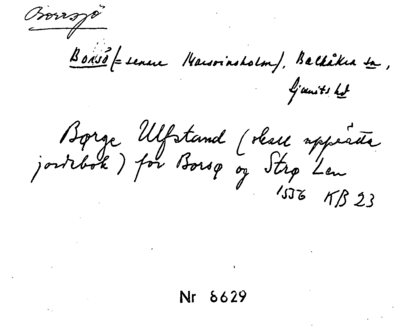 Borrsjö
Borsö (= senare Marsvinsholm), Balkåkra sn,
Ljunits hd
Børge Ulfstand (skall upprätta
jordebok) før Borsø og Strø Len
1536 KB 23
Nr 8629